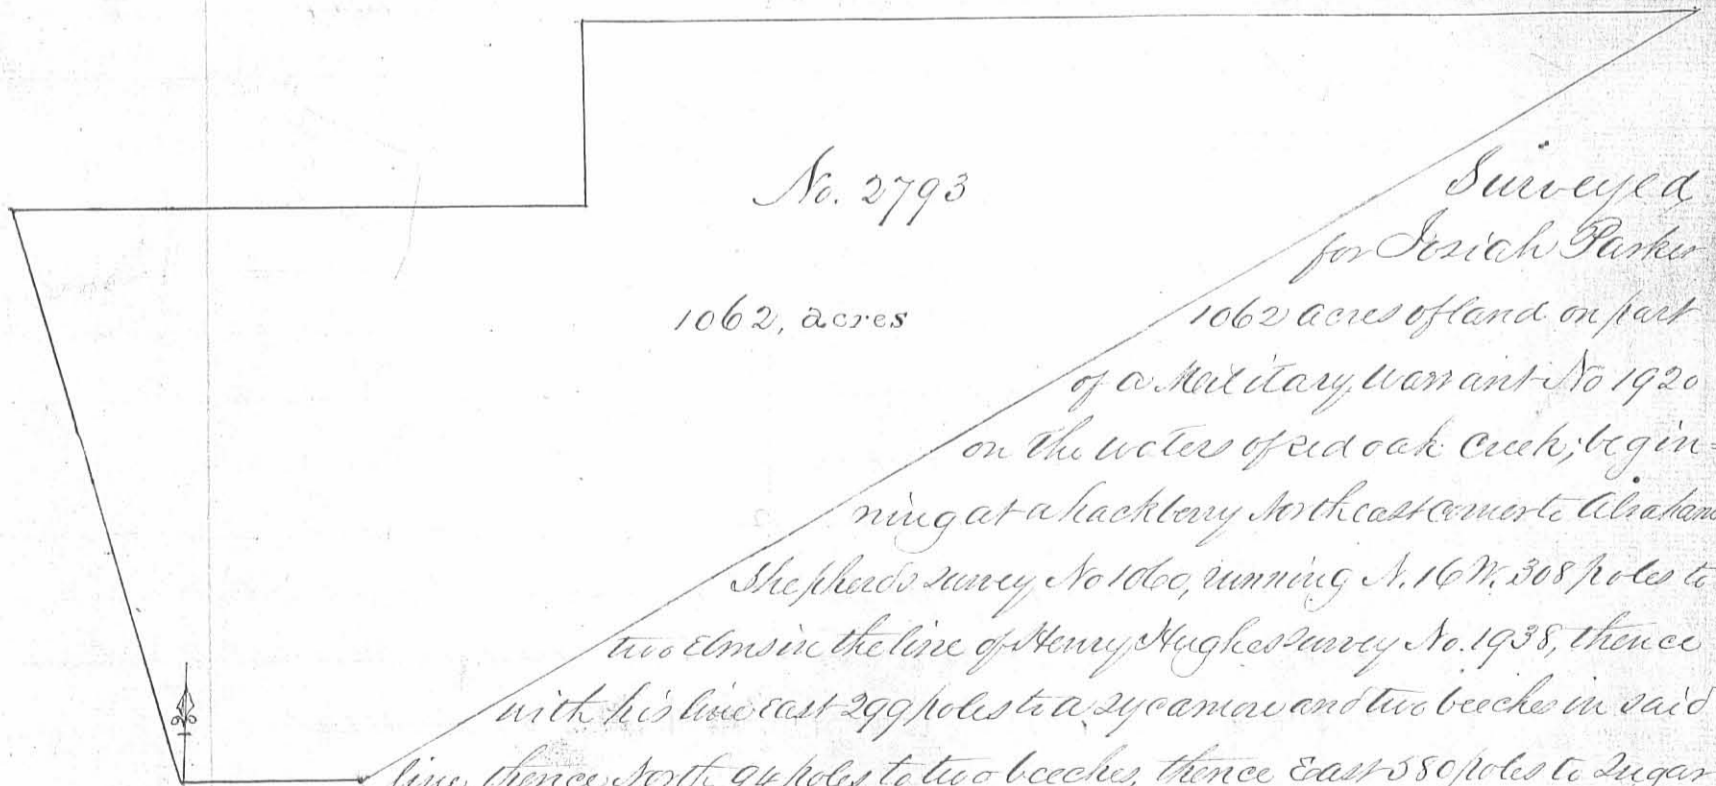 No. 2793
1062, acres
Surveyed
for Josiah Parker
1062 acres of land on part
of a Military Warrant No 1920
on the waters of red oak Creek; begin=
ning at a hackberry Northeast corner to Abraham
Shepherds survey No 1060, running N. 16 W. 308 poles to
two Elms in the line of Henry Hughes survey No. 1938, thence
with his line East 299 poles to a sycamore and two beeches in said
line, thence North 94 poles to two beeches, thence East 580 poles to Sugar